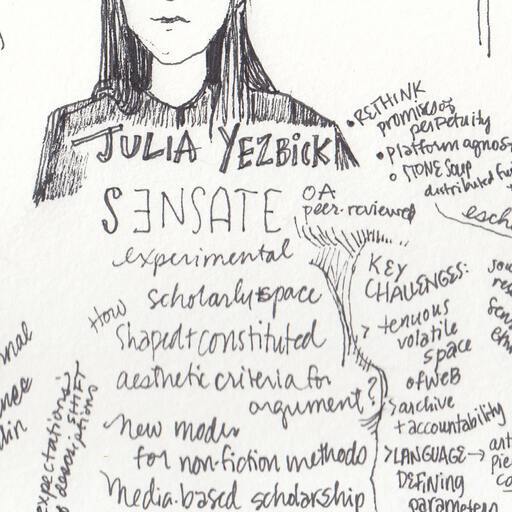 JULIA YEZBICK
SENSATE
OA
peer-reviewed
experimental
scholarly space
How
shaped + constituted
aesthetic criteria for
argument?
new modes
for non-fiction methods
media-based scholarship
• RETHINK
promises of
perpetuity
• platform agnos
○ STONE Soup
distributed fu
esch
KEY
CHALLENGES:
> tenuous
volatile
space
of WEB
> archive
+ accountability
> LANGUAGE →
DEFINING
parameters
expectations